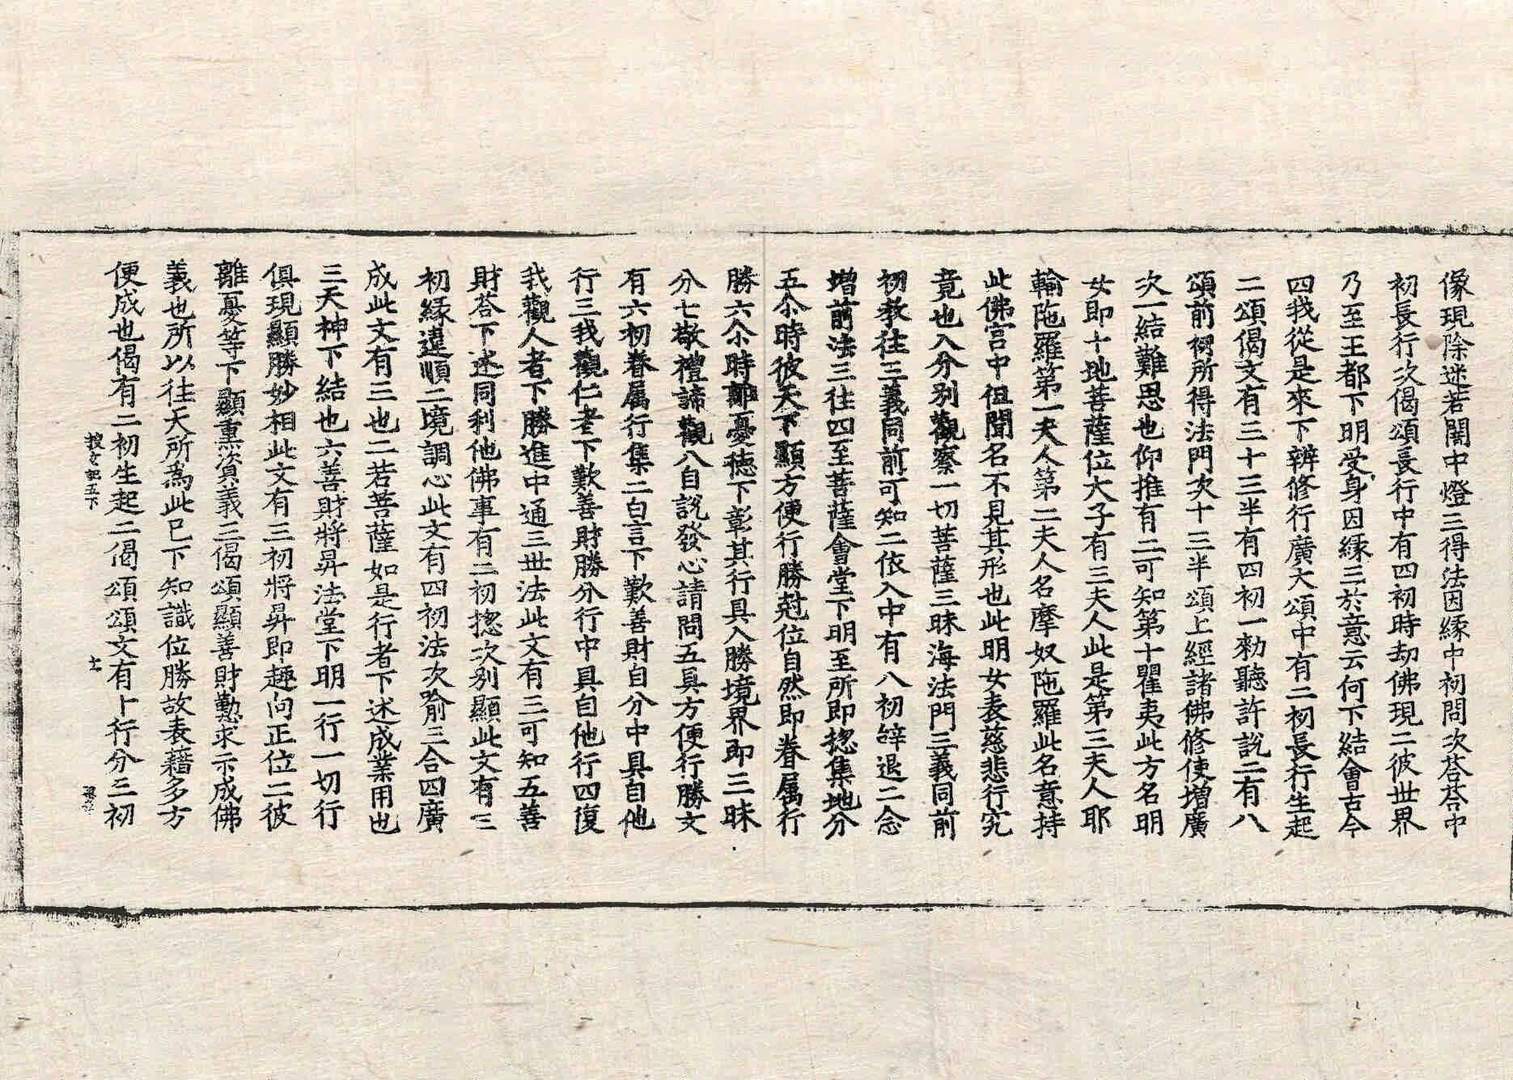 像現除迷若闇中燈三得法因緣中初問次荅荅中
初長行次偈頌長行中有四初時劫佛現二彼世界
乃至王都下明受身因緣三於意云何下結會古今
四我從是來下辨修行廣大頌中有二初長行生起
二頌偈文有三十三半有四初一勑聽許說二有八
頌前初所得法門次十三半頌上經諸佛修使增廣
次一結難思也仰推有二可知第十瞿夷此方名明
女即十地菩薩位大子有三夫人此是第三夫人耶
輸陁羅第一夫人第二夫人名摩奴陁羅此名意持
此佛宫中但聞名不見其形也此明女表慈悲行究
竟也入分別觀察一切菩薩三昧海法門三義同前
初教往三義同前可知二依入中有八初辝退二念
增前法三往四至菩薩會堂下明至所即揔集地分
五尒時彼天下顯方便行勝尅位自然即眷属行
勝六尒時離憂德下彰其行具入勝境界即三昧
分七敬禮諦觀八自說發心請問五具方便行勝文
有六初眷属行集二白言下歎善財自分中具自他
行三我觀仁者下歎善財勝分行中具自他行四復
我觀人者下勝進中通三世法此文有三可知五善
財荅下述同利他佛事有二初揔次別顯此文有三
初緣違順二境調心此文有四初法次喻三合四廣
成此文有三也二若菩薩如是行者下述成業用也
三天神下結也六善財將昇法堂下明一行一切行
俱現顯勝妙相此文有三初將昇即趣向正位二彼
離憂等下顯熏資義三偈頌顯善財懃求示成佛
義也所以往天所爲此已下知識位勝故表藉多方
便成也偈有二初生起二偈頌頌文有十行分三初
搜玄記五下